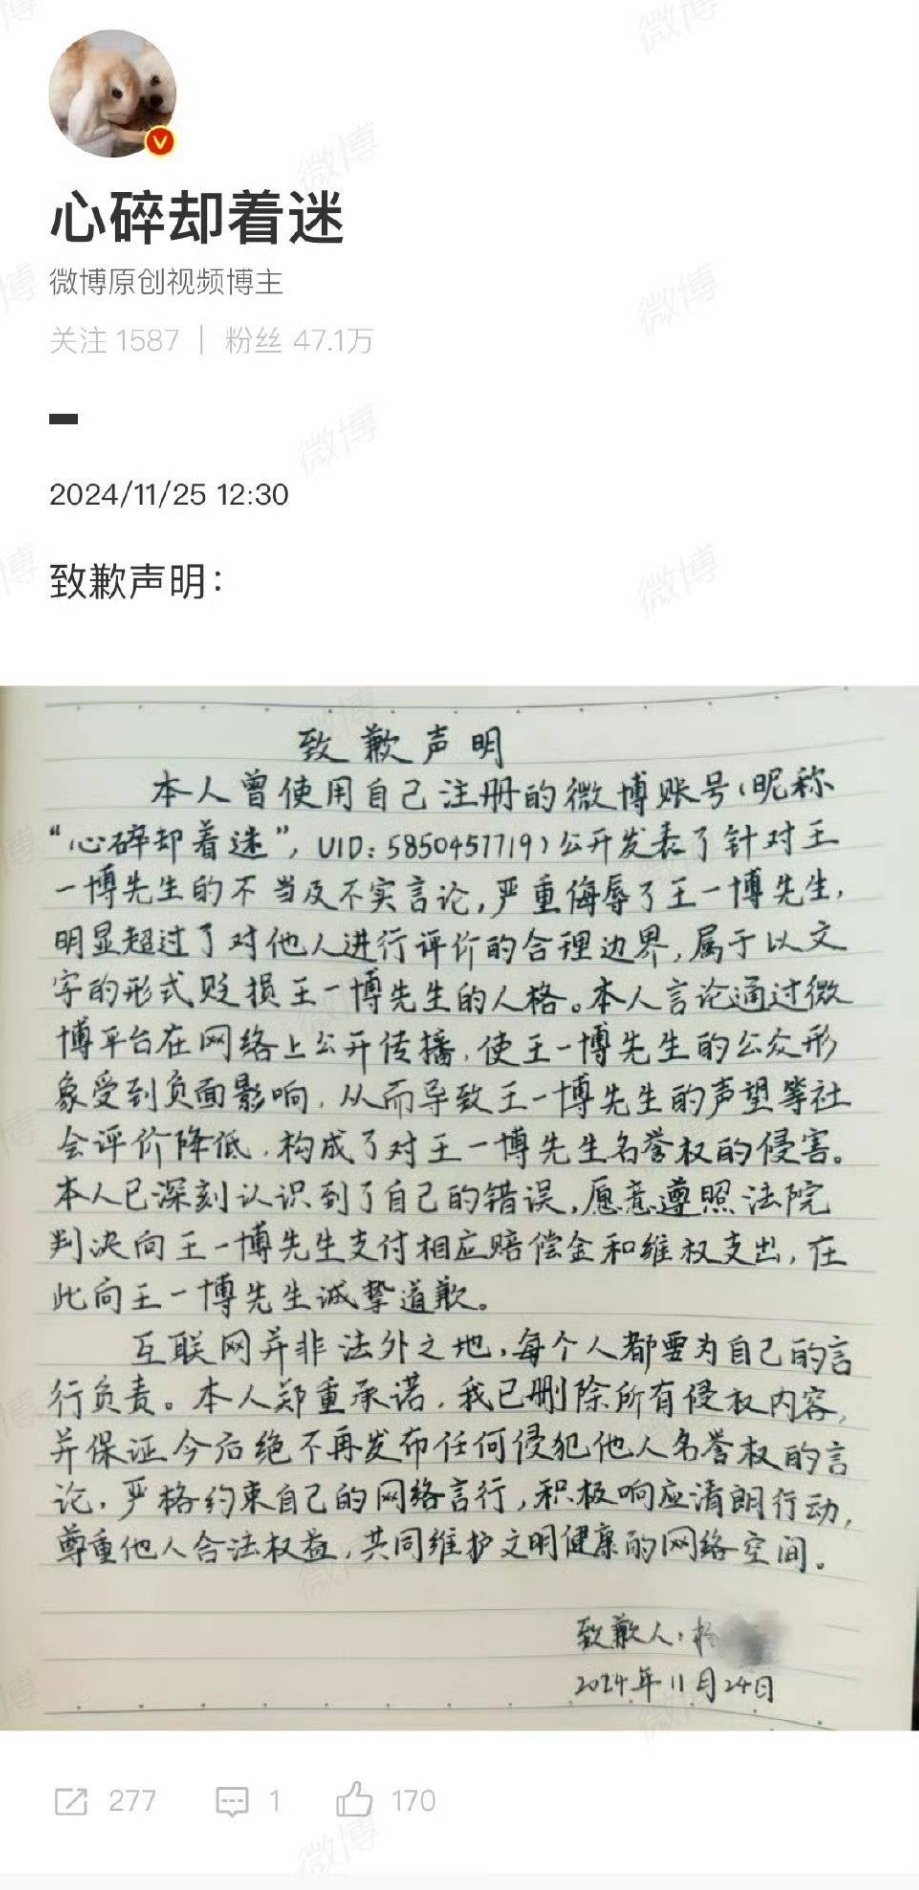 心碎却着迷
微博原创视频博主
关注 1587 | 粉丝 47.1万
2024/11/25 12:30
致歉声明:
致歉声明
本人曾使用自己注册的微博账号(昵称
“心碎却着迷”, UID: 5850457719)公开发表了针对王
一博先生的不当及不实言论,严重侮辱了王一博先生,
明显超过了对他人进行评价的合理边界,属于以文
字的形式贬损王一博先生的人格。本人言论通过微
博平台在网络上公开传播,使王一博先生的公众形
象受到负面影响,从而导致王一博先生的声望等社
会评价降低,构成了对王一博先生名誉权的侵害。
本人已深刻认识到了自己的错误,愿意遵照法院
判决向王一博先生支付相应赔偿金和维权支出,在
此向王一博先生诚挚道歉。
互联网并非法外之地,每个人都要为自己的言
行负责。本人郑重承诺,我已删除所有侵权内容,
并保证今后绝不再发布任何侵犯他人名誉权的言
论,严格约束自己的网络言行,积极响应清朗行动,
尊重他人合法权益,共同维护文明健康的网络空间。
致歉人:杨
2024年11月24日
277 1 170
微博